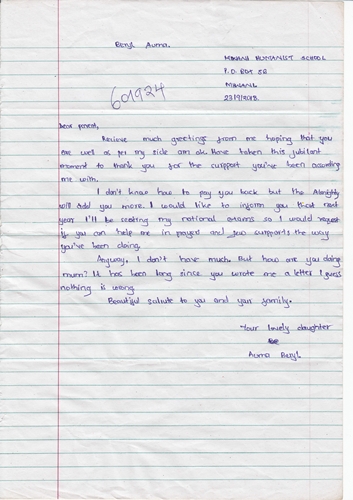 Beryl Auma.
MBHANI HUMANIST SCHOOL
P.O BOX 52
23/9/2018.
601924
Dear parent,
Recieve much greetings from me hoping that you
are well as per my side am ok. Have taken this jubilant
moment to thank you for the support you've been
me with.
I don't know how to pay you back but the Almighty
will add you more. I would like to inform you that next
year I'll be seating my national exams so I would request
if you can help me in prayers and supports the way
you've been doing.
Anyway, I don't have much. But how are you doing
mum? It has been long since you wrote me a letter I guess
nothing is wrong.
Beautiful salute to you and your family.
Your lovely daughter
Auma Beryl